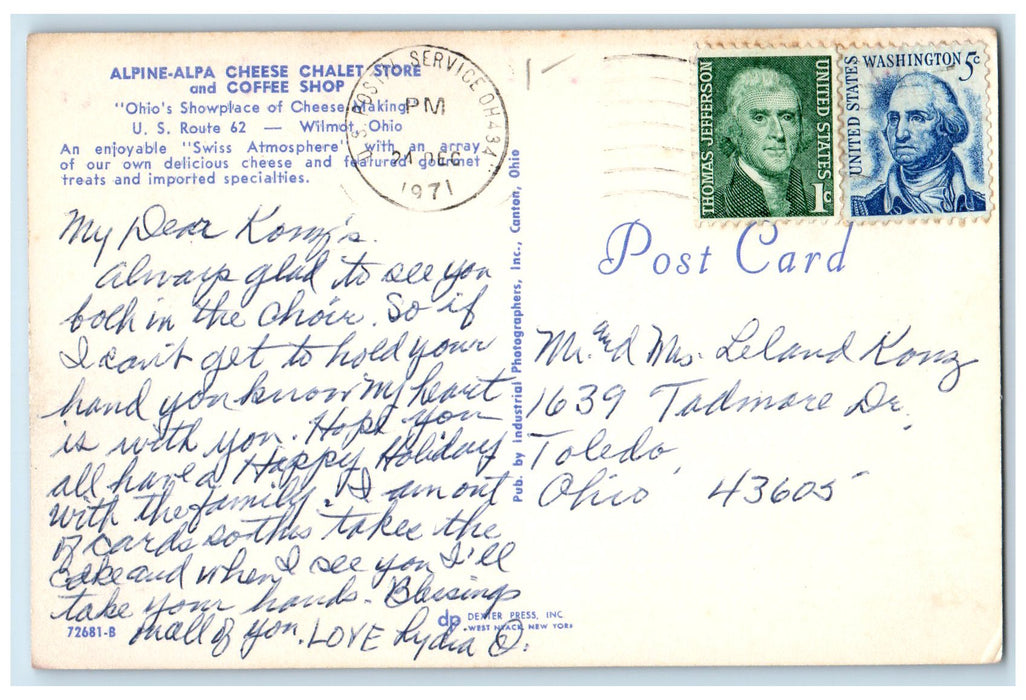 ALPINE-ALPA CHEESE CHALET STORE
and COFFEE SHOP
"Ohio's Showplace of Cheese Making"
U. S. Route 62 — Wilmot, Ohio
An enjoyable "Swiss Atmosphere" with an array
of our own delicious cheese and featured gourmet
treats and imported specialties.
U.S. POSTAL SERVICE OH 434
PM
21 DEC
1971
THOMAS JEFFERSON
UNITED STATES
1c
UNITED STATES
WASHINGTON 5c
Post Card
My Dear Konz's.
Always glad to see you
both in the choir. So if
I can't get to hold your
hand you know my heart
is with you. Hope you
all have a Happy Holiday
with the family. I am out
of cards so this takes the
cake and when I see you I'll
take your hands. Blessings
on all of you. LOVE Lydia O.
Pub. by Industrial Photographers, Inc., Canton, Ohio
Mr. and Mrs. Leland Konz
1639 Tadmore Dr.
Toledo,
Ohio 43605
72681-B
dp DEXTER PRESS, INC.
WEST NYACK, NEW YORK